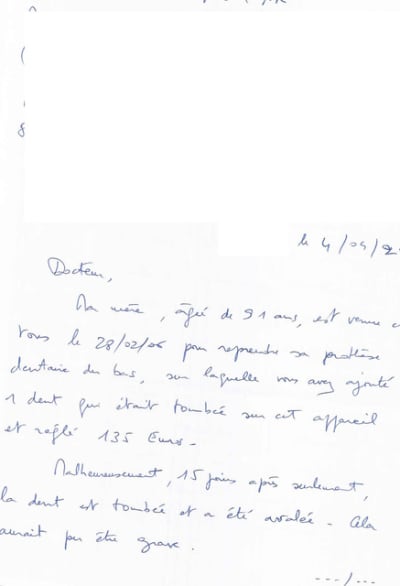 le 4/04/2
Docteur,
Ma mère, âgée de 91 ans, est venue c
vous le 28/02/06 pour reprendre sa prothèse
dentaire du bas, sur laquelle vous avez ajouté
1 dent qui était tombée sur cet appareil
et réglé 135 Euros -
Malheureusement, 15 jours après seulement,
la dent est tombée et a été avalée - Cela
aurait pu être grave.
---/---